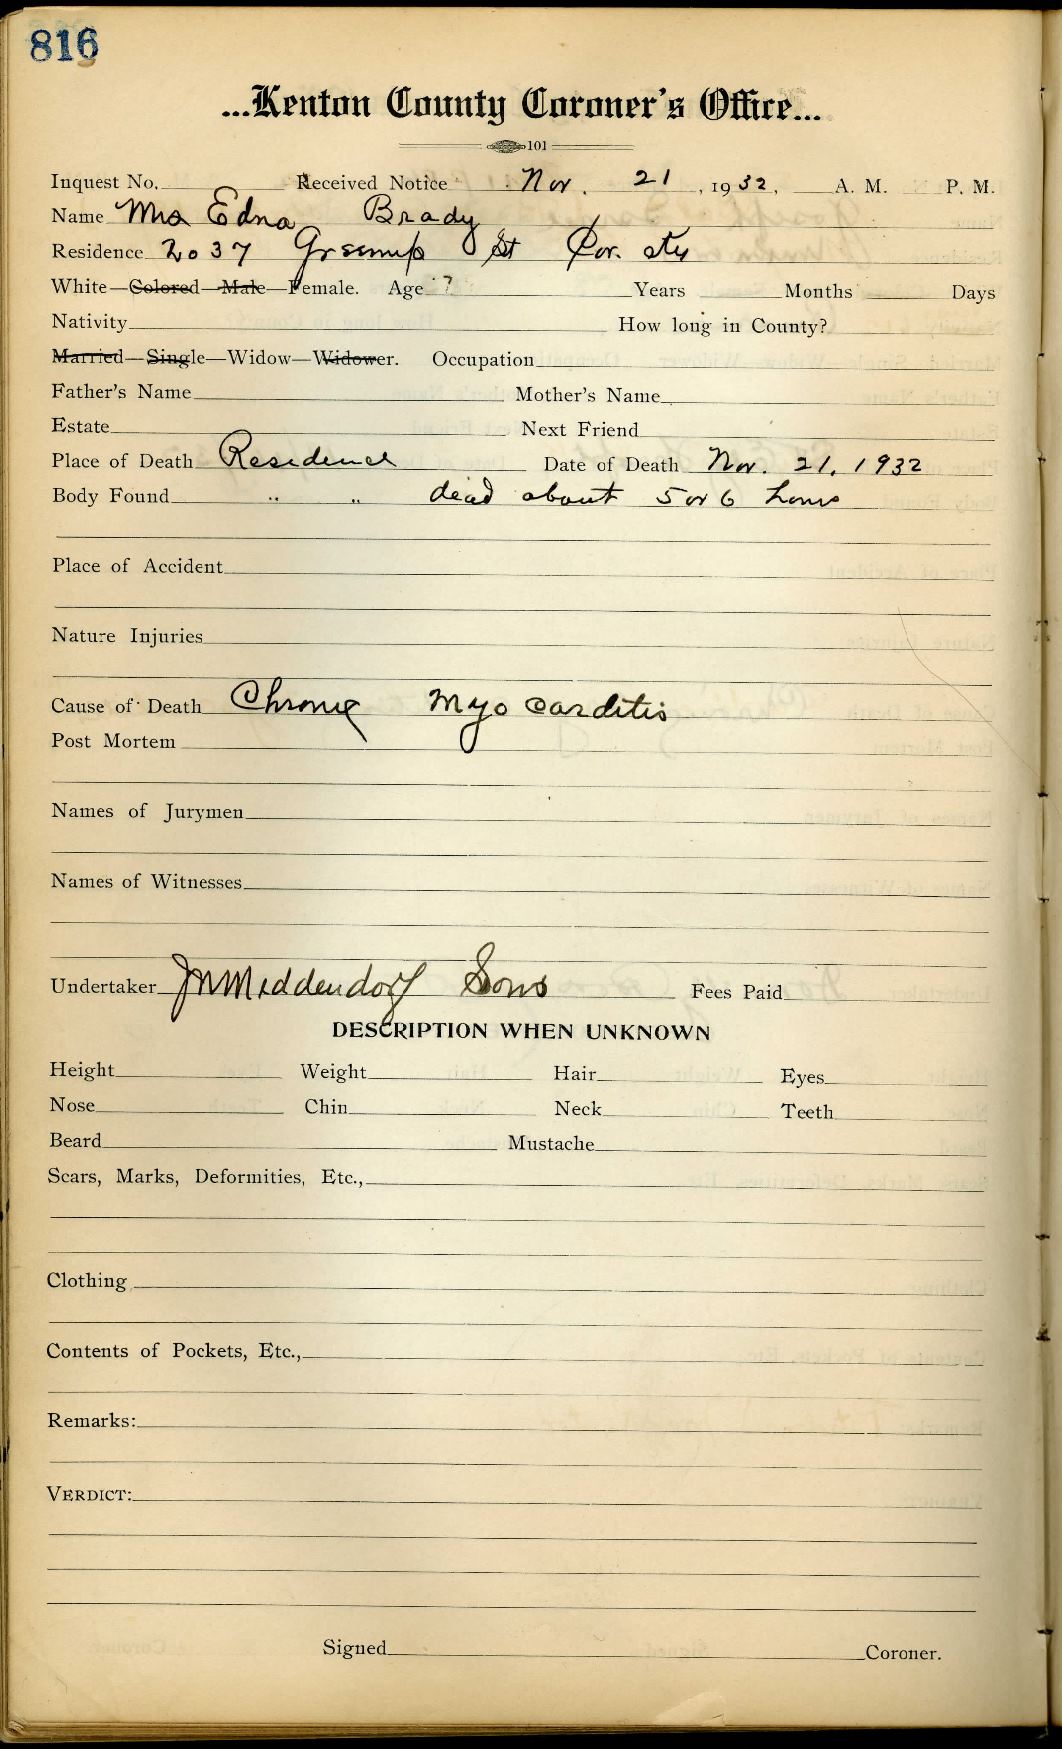 816
...Kenton County Coroner's Office...
101
Inquest No. Received Notice Nov. 21, 1932, A. M. P. M.
Name Mrs Edna Brady
Residence 2037 Greenup St Cov. Ky
White—Colored—Male—Female. Age ? Years Months Days
Nativity How long in County?
Married—Single—Widow—Widower. Occupation
Father's Name Mother's Name
Estate Next Friend
Place of Death Residence Date of Death Nov. 21, 1932
Body Found " " dead about 5 or 6 hours
Place of Accident
Nature Injuries
Cause of Death Chronic Myo carditis
Post Mortem
Names of Jurymen
Names of Witnesses
Undertaker JN Middendorf Sons Fees Paid
DESCRIPTION WHEN UNKNOWN
Height Weight Hair Eyes
Nose Chin Neck Teeth
Beard Mustache
Scars, Marks, Deformities, Etc.,
Clothing
Contents of Pockets, Etc.,
Remarks:
VERDICT:
Signed Coroner.